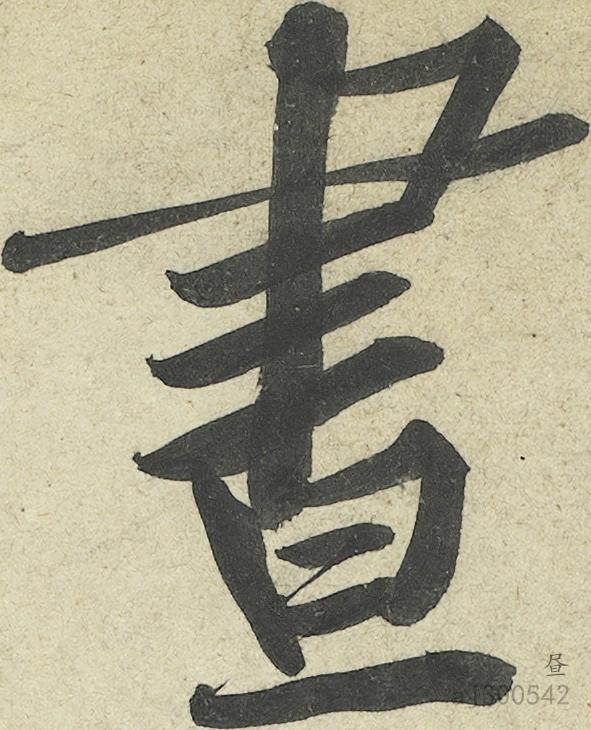 晝
昼
a1300542